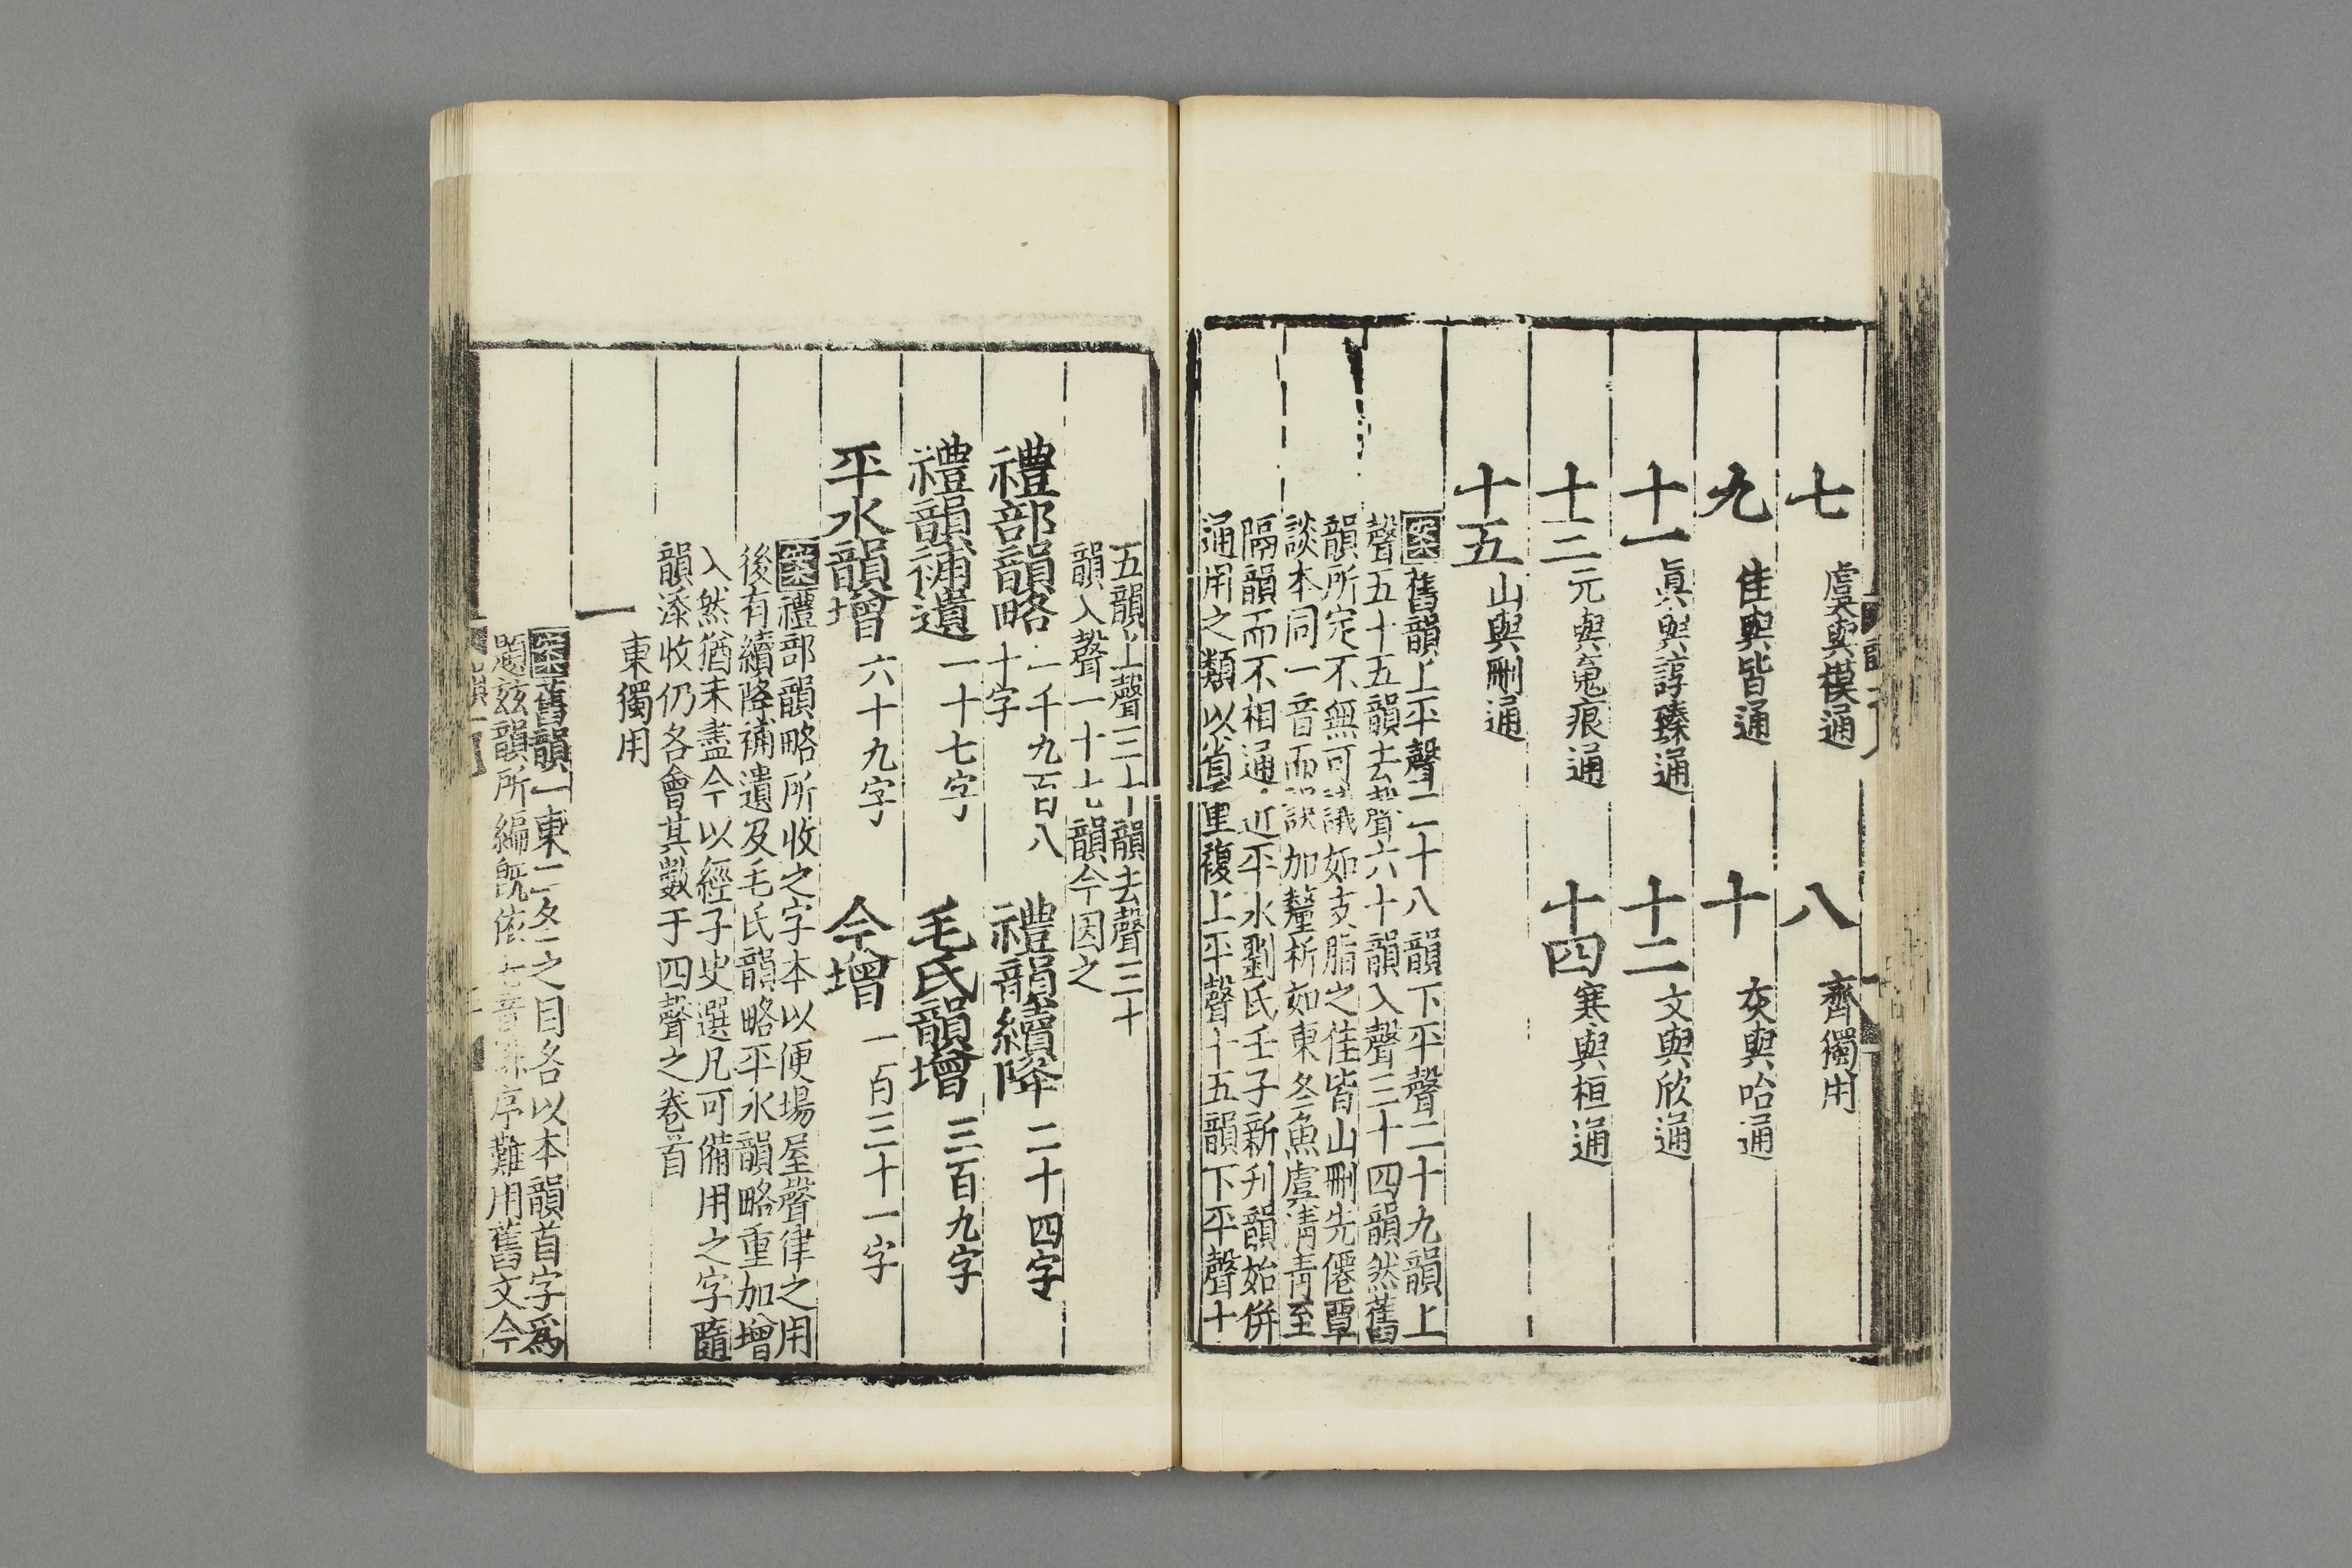 七 虞與模通 八 齊獨用
九 佳與皆通 十 灰與咍通
十一 眞與諄臻通 十二 文與欣通
十三 元與䰟痕通 十四 寒與桓通
十五 山與刪通
案舊韻上平聲二十八韻下平聲二十九韻上
聲五十五韻去聲六十韻入聲三十四韻然舊
韻所定不無可議如支脂之佳皆山刪先僊覃
談本同一音而誤加釐析如東冬魚虞淸靑至
隔韻而不相通近平水劉氏壬子新刋韻始併
通用之類以省重複上平聲十五韻下平聲十
五韻上聲三十韻去聲三十
韻入聲一十七韻今因之
禮部韻略 一千九百八 禮韻續降 二十四字
十字
禮韻補遺 一十七字 毛氏韻增 三百九字
平水韻增 六十九字 今增 一百三十一字
案禮部韻略所收之字本以便場屋聲律之用
後有續降補遺及毛氏韻略平水韻略重加增
入然猶未盡今以經子史選凡可備用之字隨
韻添收仍各會其數于四聲之卷首
一 東獨用
案舊韻一東二冬之目各以本韻首字爲
題兹韻所編旣依七音 序難用舊文今